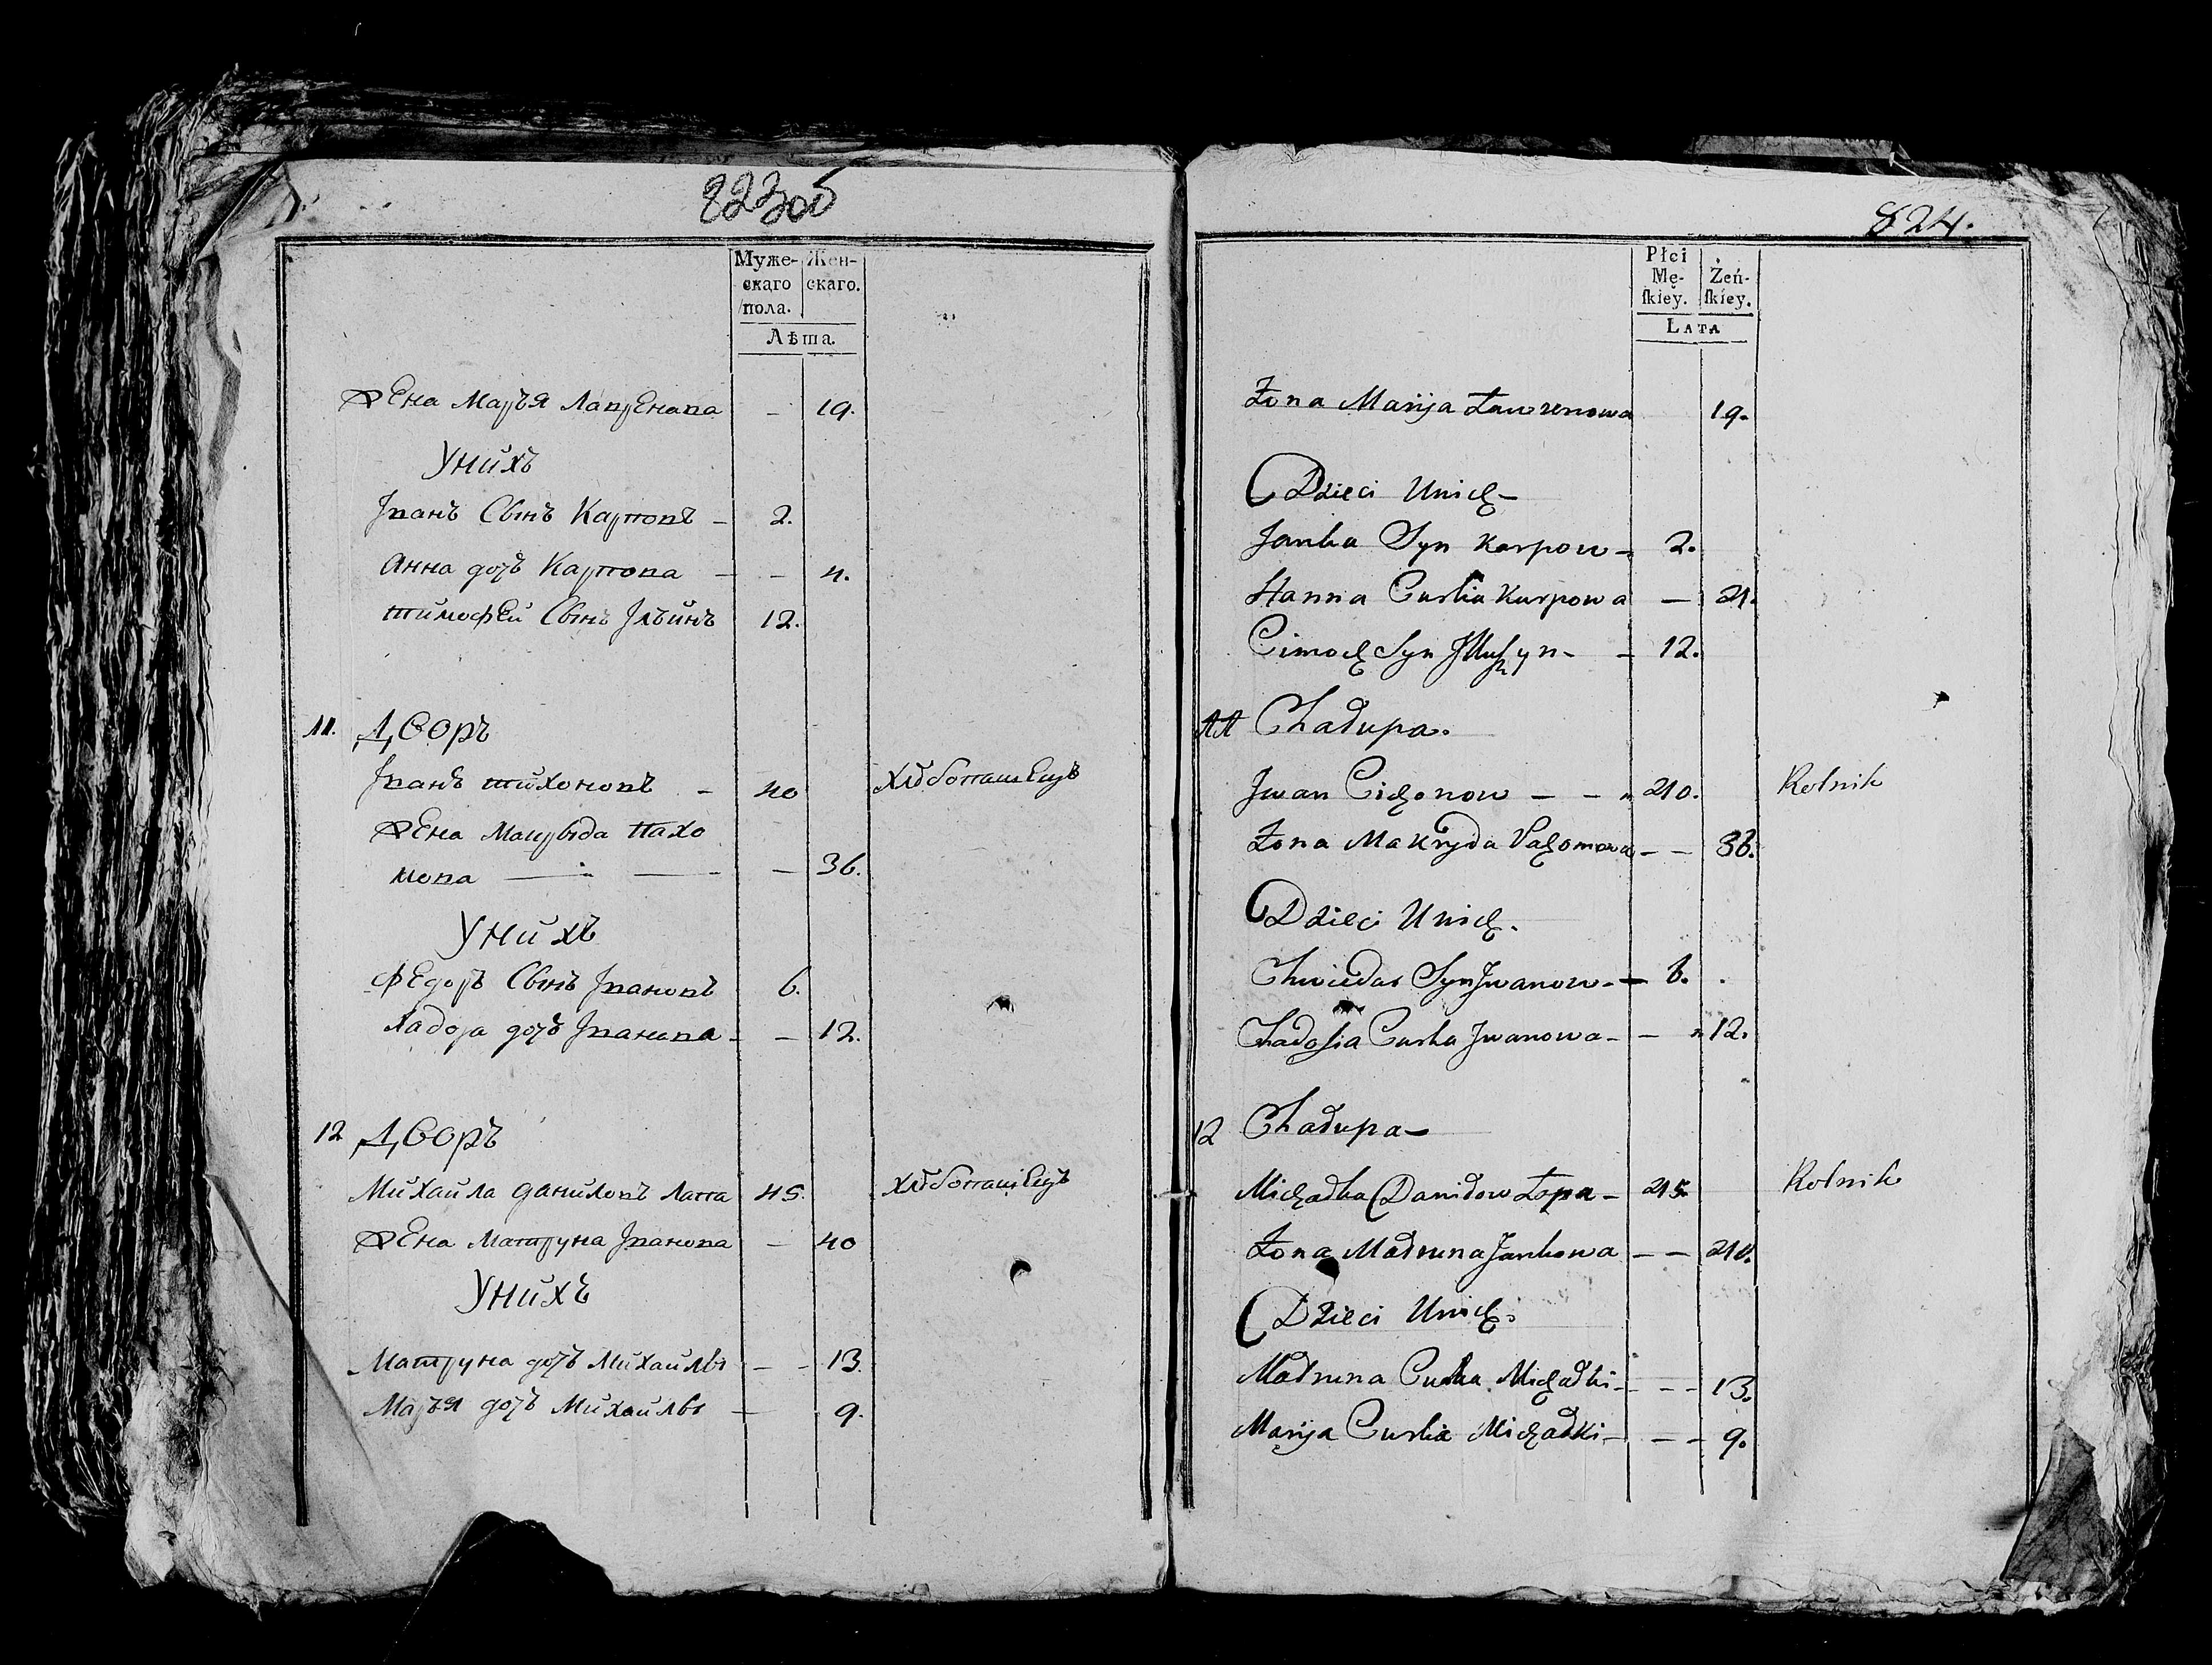 823об
Муже-
скаго
пола.
Жен-
скаго.
Лѣта.
Жена Марья Лавренава – 19.
У нихъ
Іванъ Сынъ Карповъ – 2.
Анна дочь Карпова – – 4.
Тимофей Сынъ Ільинъ 12.
11. Дворъ
Іванъ Тихоновъ – 40 Хлѣбопашецъ
Жена Макрыда Пахо
мова – – – 36.
У нихъ
Федоръ Сынъ Івановъ 6.
Хадося дочь Іванова – – 12.
12 Дворъ
Михайла Даниловъ Лапа 45. Хлѣбопашецъ
Жена Матруна Іванова – 40
У нихъ
Матруна дочь Михайлы – – 13.
Марья дочь Михайлы – 9.
824.
Płci
Mę-
ſkiey.
Żeń-
ſkiey.
LATA
Żona Maryja Ławrenowa 19.
Dzieci Unich –
Janka Syn Karpow – 2.
Hanna Curka Karpowa – 4.
Cimoch Syn – 12.
11 Chałupa.
Jwan Cichonow – – 40. Rolnik
Żona Makryda Pachomowa – – 36.
Dzieci Unich.
Chwiedar Syn Jwanow – – 6.
Chadosia Curka Jwanowa – – 12.
12 Chałupa –
Michałka Daniłow Łapa – 45. Rolnik
Żona Matruna Jankowa – – 40.
Dzieci Unich.
Matruna Curka Michałki – – – 13.
Maryja Curka Michałki – – – 9.